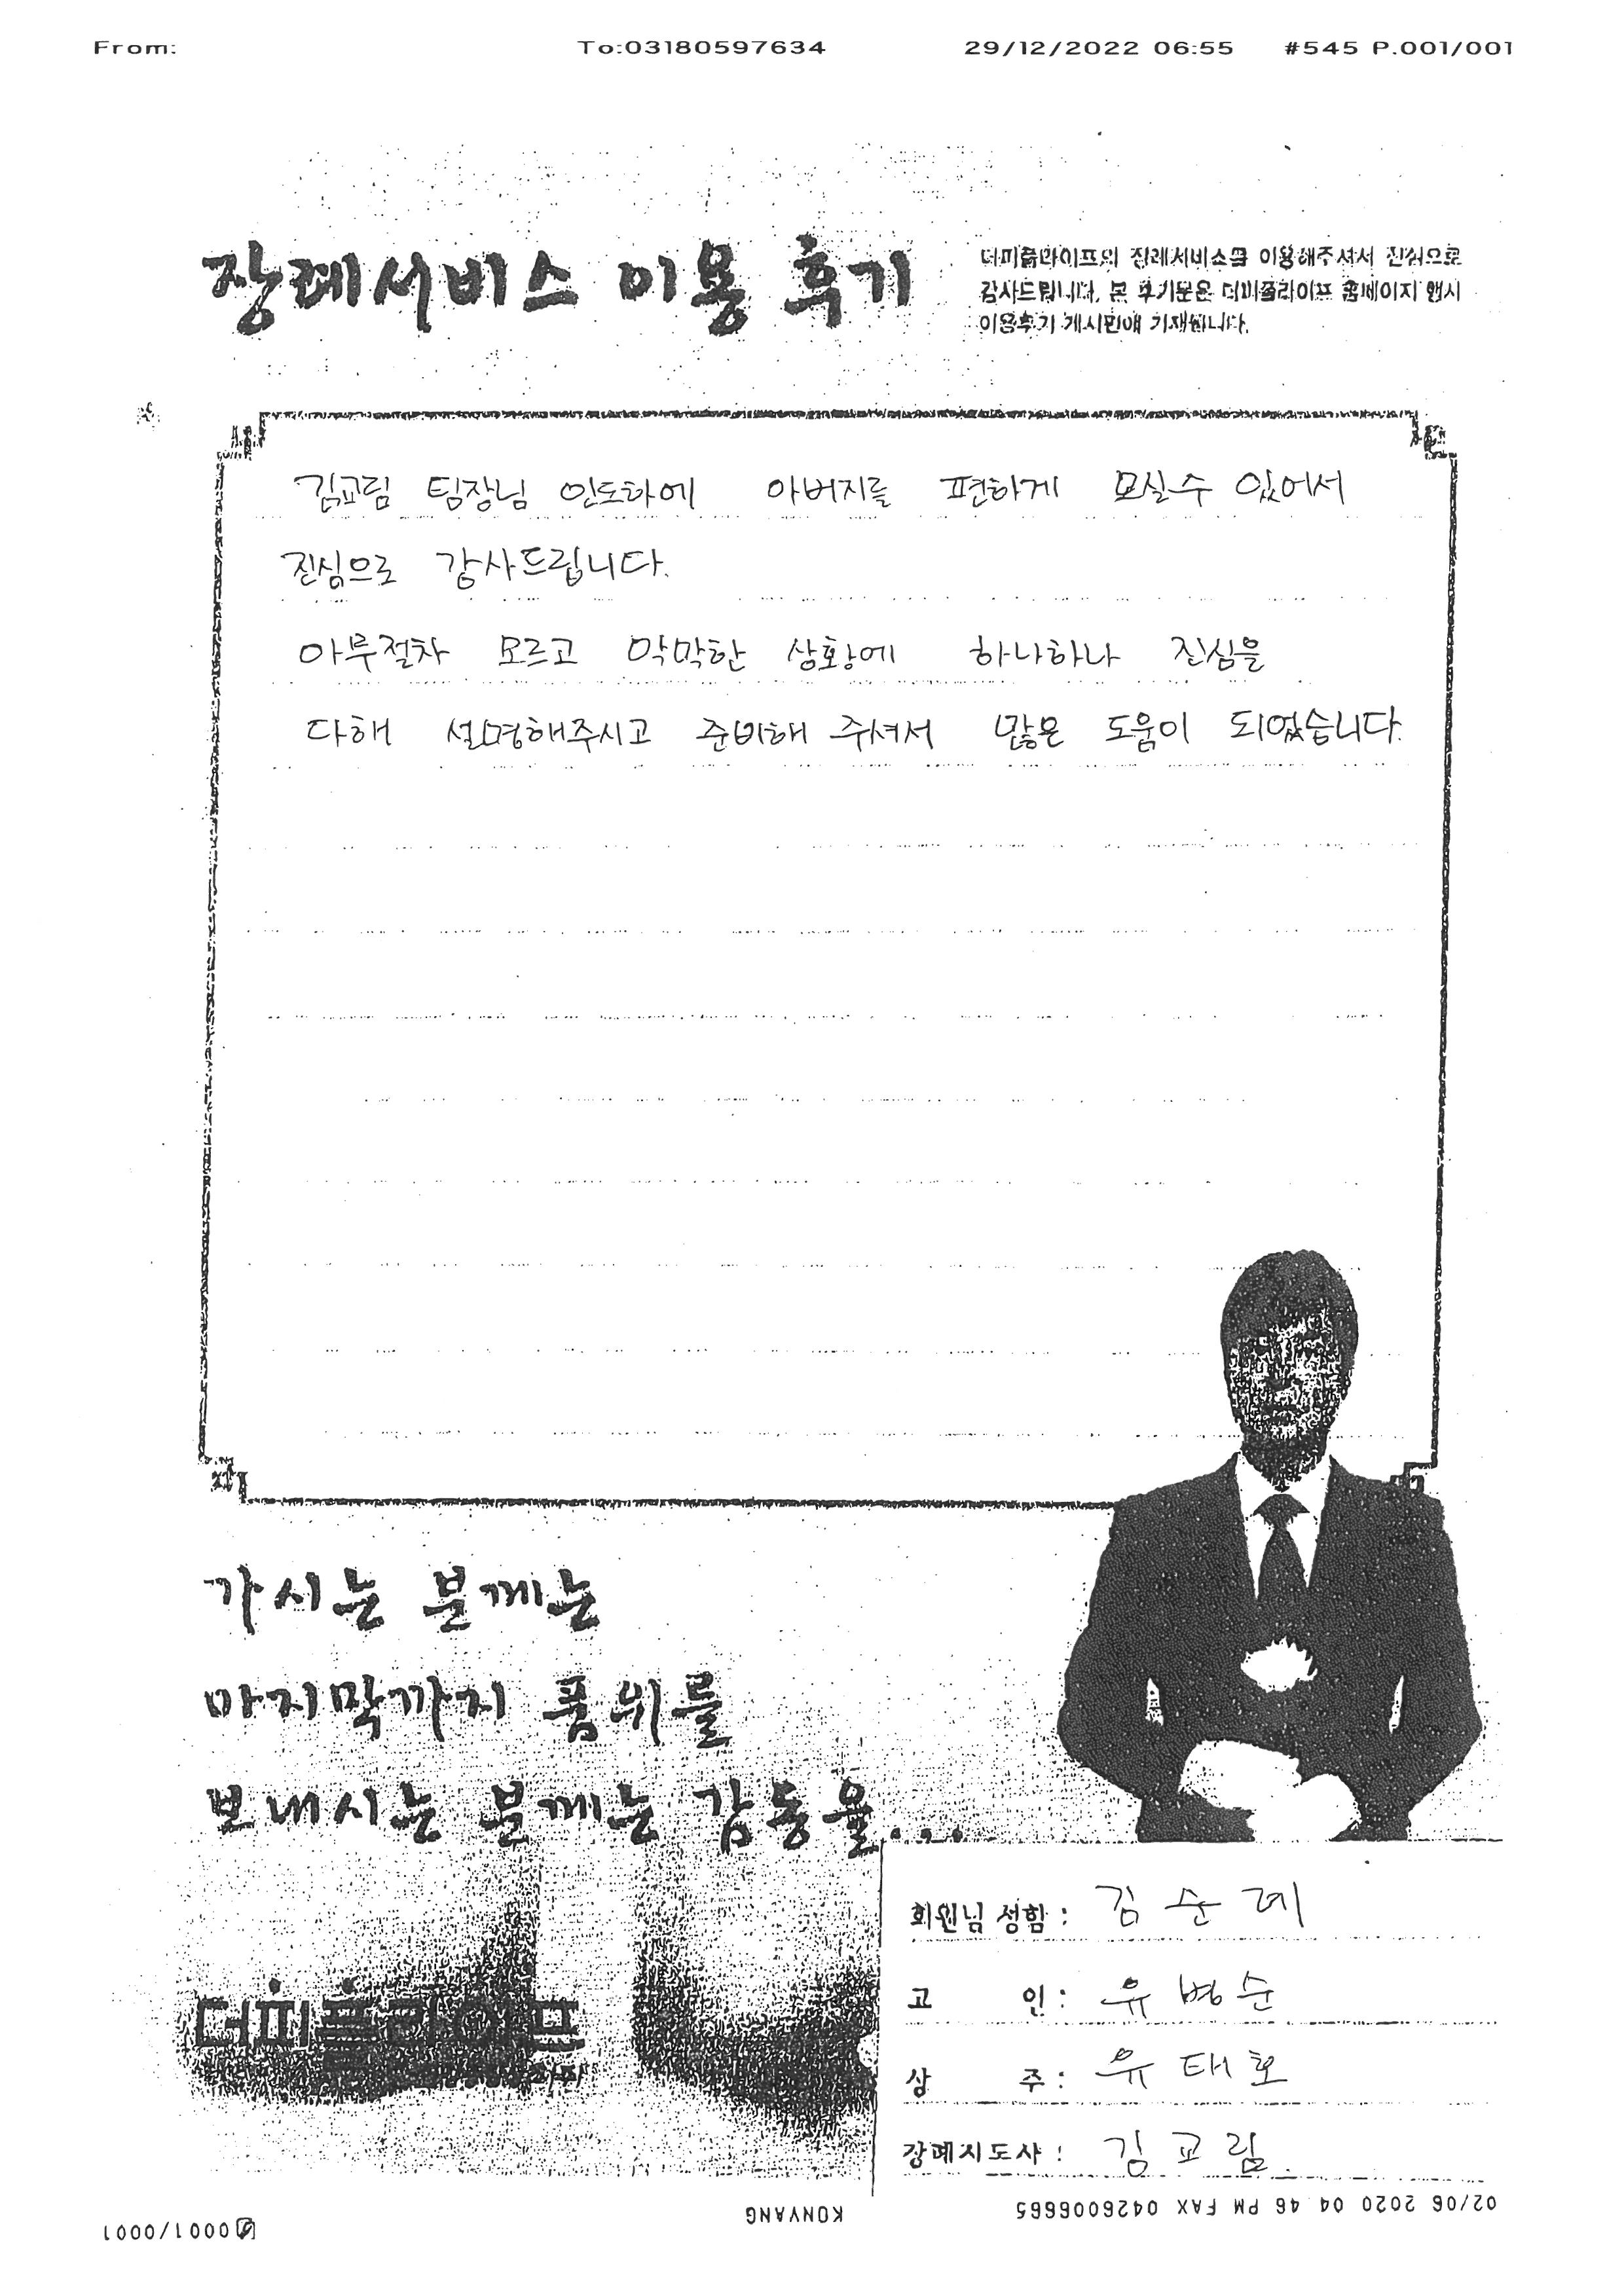 From: To:03180597634 29/12/2022 06:55 #545 P.001/001
장례서비스 이용 후기
더피플라이프의 장례서비스를 이용해주셔서 진심으로
감사드립니다. 본 후기문은 더피플라이프 홈페이지 행시
이용후기 게시판에 기재됩니다.
김교림 팀장님 인도하에 아버지를 편하게 모실수 있어서
진심으로 감사드립니다.
아무절차 모르고 막막한 상황에 하나하나 진심을
다해 설명해주시고 준비해 주셔서 많은 도움이 되었습니다.
가시는 분께는
마지막까지 품위를
보내시는 분께는 감동을...
더피플라이프
회원님 성함 : 김순례
고 인 : 유병순
상 주 : 유태호
장례지도사 : 김교림
02/06 2020 04 46 PM FAX 0426006665 KONYANG 0001/0001